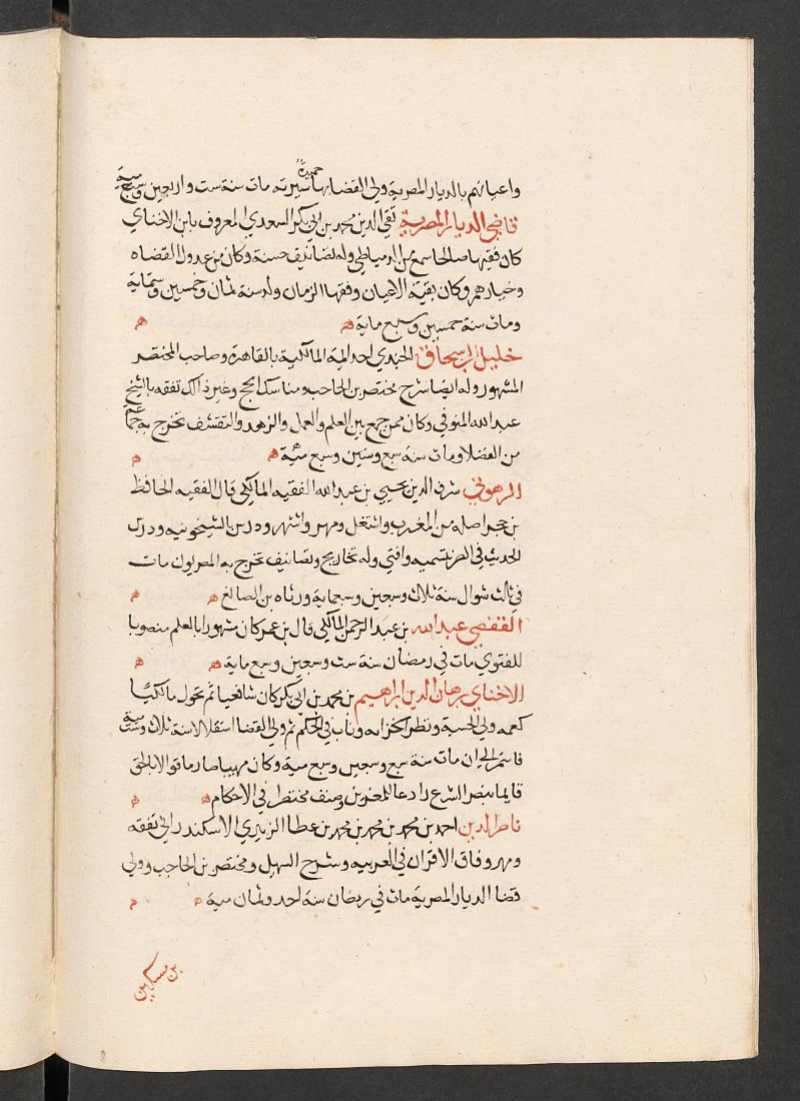 واعيانهم بالديار المصرية ولي القضا بها حميدة سيرته مات سنة ست واربعين وسبع مية
قاضي الديار المصرية تقي الدين محمد بن ابي بكر السعدي المعروف بابن الاخناي
كان فقيها صالحا سمع من الدمياطي وله تصانيف حسنة وكان من عدول القضاه
وخيارهم وكان بقية الاعيان وفقها الزمان ولد سنة ثمان وخمسين وستماية
ومات سنة خمسين وسبع ماية
خليل بن اسحاق الجندي احد ايمة المالكية بالقاهرة وصاحب المختصر
المشهور وله ايضا شرح مختصر بن الحاجب ومناسك الحج وغير ذالك تفقه بالشيخ
عبد الله المنوفي وكان ممن جمع بين العلم والعمل والزهد والتقشف تخرج به جماعة
من الفضلا ومات سنة سبع وستين وسبع مئية
الرهوني شرف الدين يحيي بن عبد الله الفقيه المالكي قال الفقيه الحافظ
بن حجر اصله من المغرب واشتغل ومهر واشتهر ودرس بالشيخونيه ودرس
الحديث في الصرغتمشيه وافتي وله تخاريج وتصانيف تخرج به المصريون مات
في ثالث شوال سنة ثلاث وسبعين وسبعماية ورثاه بن الصايغ
القفصي عبد الله بن عبد الرحمن المالكي قال بن حجر كان مشهورا بالعلم منصوبا
للفتوي مات في رمضان سنة ست وسبعين وسبع ماية
الاخناي برهان الدين ابراهيم بن محمد بن ابي بكر كان شافعيا ثم تحول مالكيا
كعمه ولي الحسبة ونظر الخزانه وناب في الحكم ثم ولي القضا استقلالا سنة ثلاث وستين
فاستمر الي ان مات سنة سبع وسبعين وسبع مية وكان مهيبا صارما قوالا بالحق
قايما بنصر الشرع رادعا للمفسدين وصنف مختصرا في الاحكام
ناصر الدين احمد بن محمد بن محمد بن محمد بن عطا الزبيري الاسكندراني تفقه
ومهر وفاق الاقران في العربيه وشرح التسهيل ومختصر بن الحاجب وولي
قضا الديار المصرية مات في رمضان سنة احد وثمان مية
بن مسكين